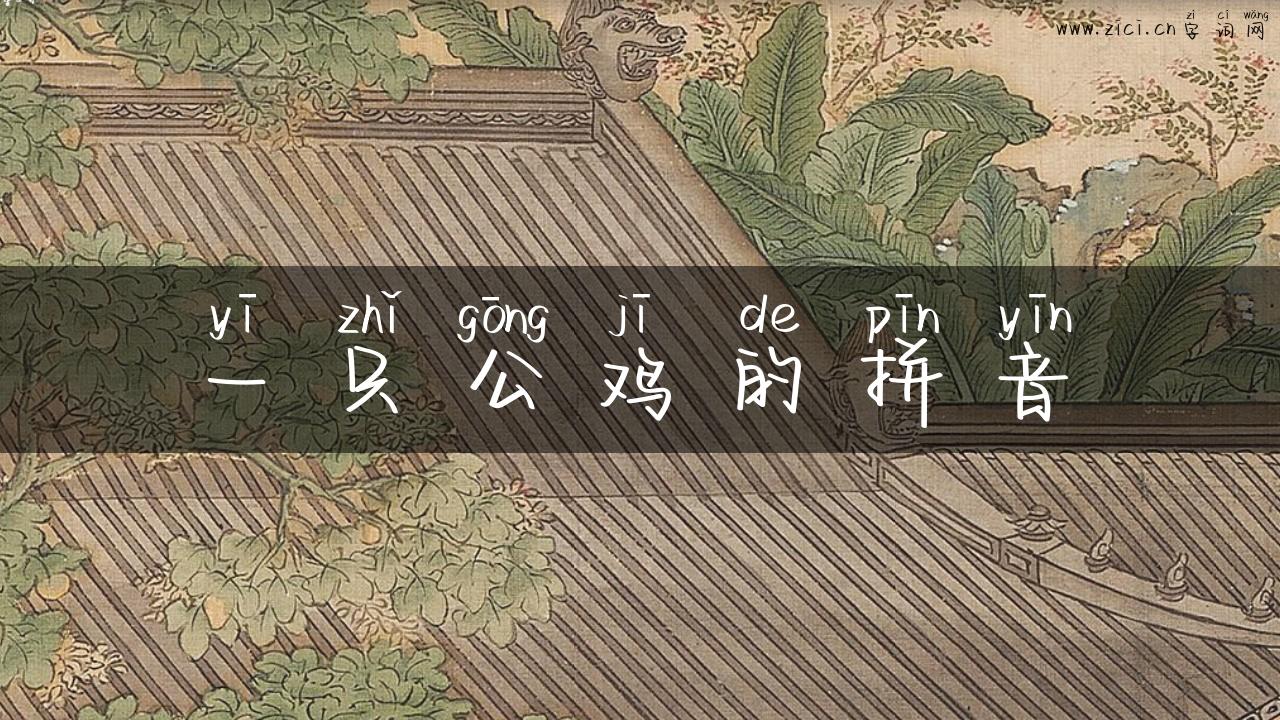 zì cí wǎng
www.zici.cn 字词网
yī zhǐ gōng jī de pīn yīn
一只公鸡的拼音